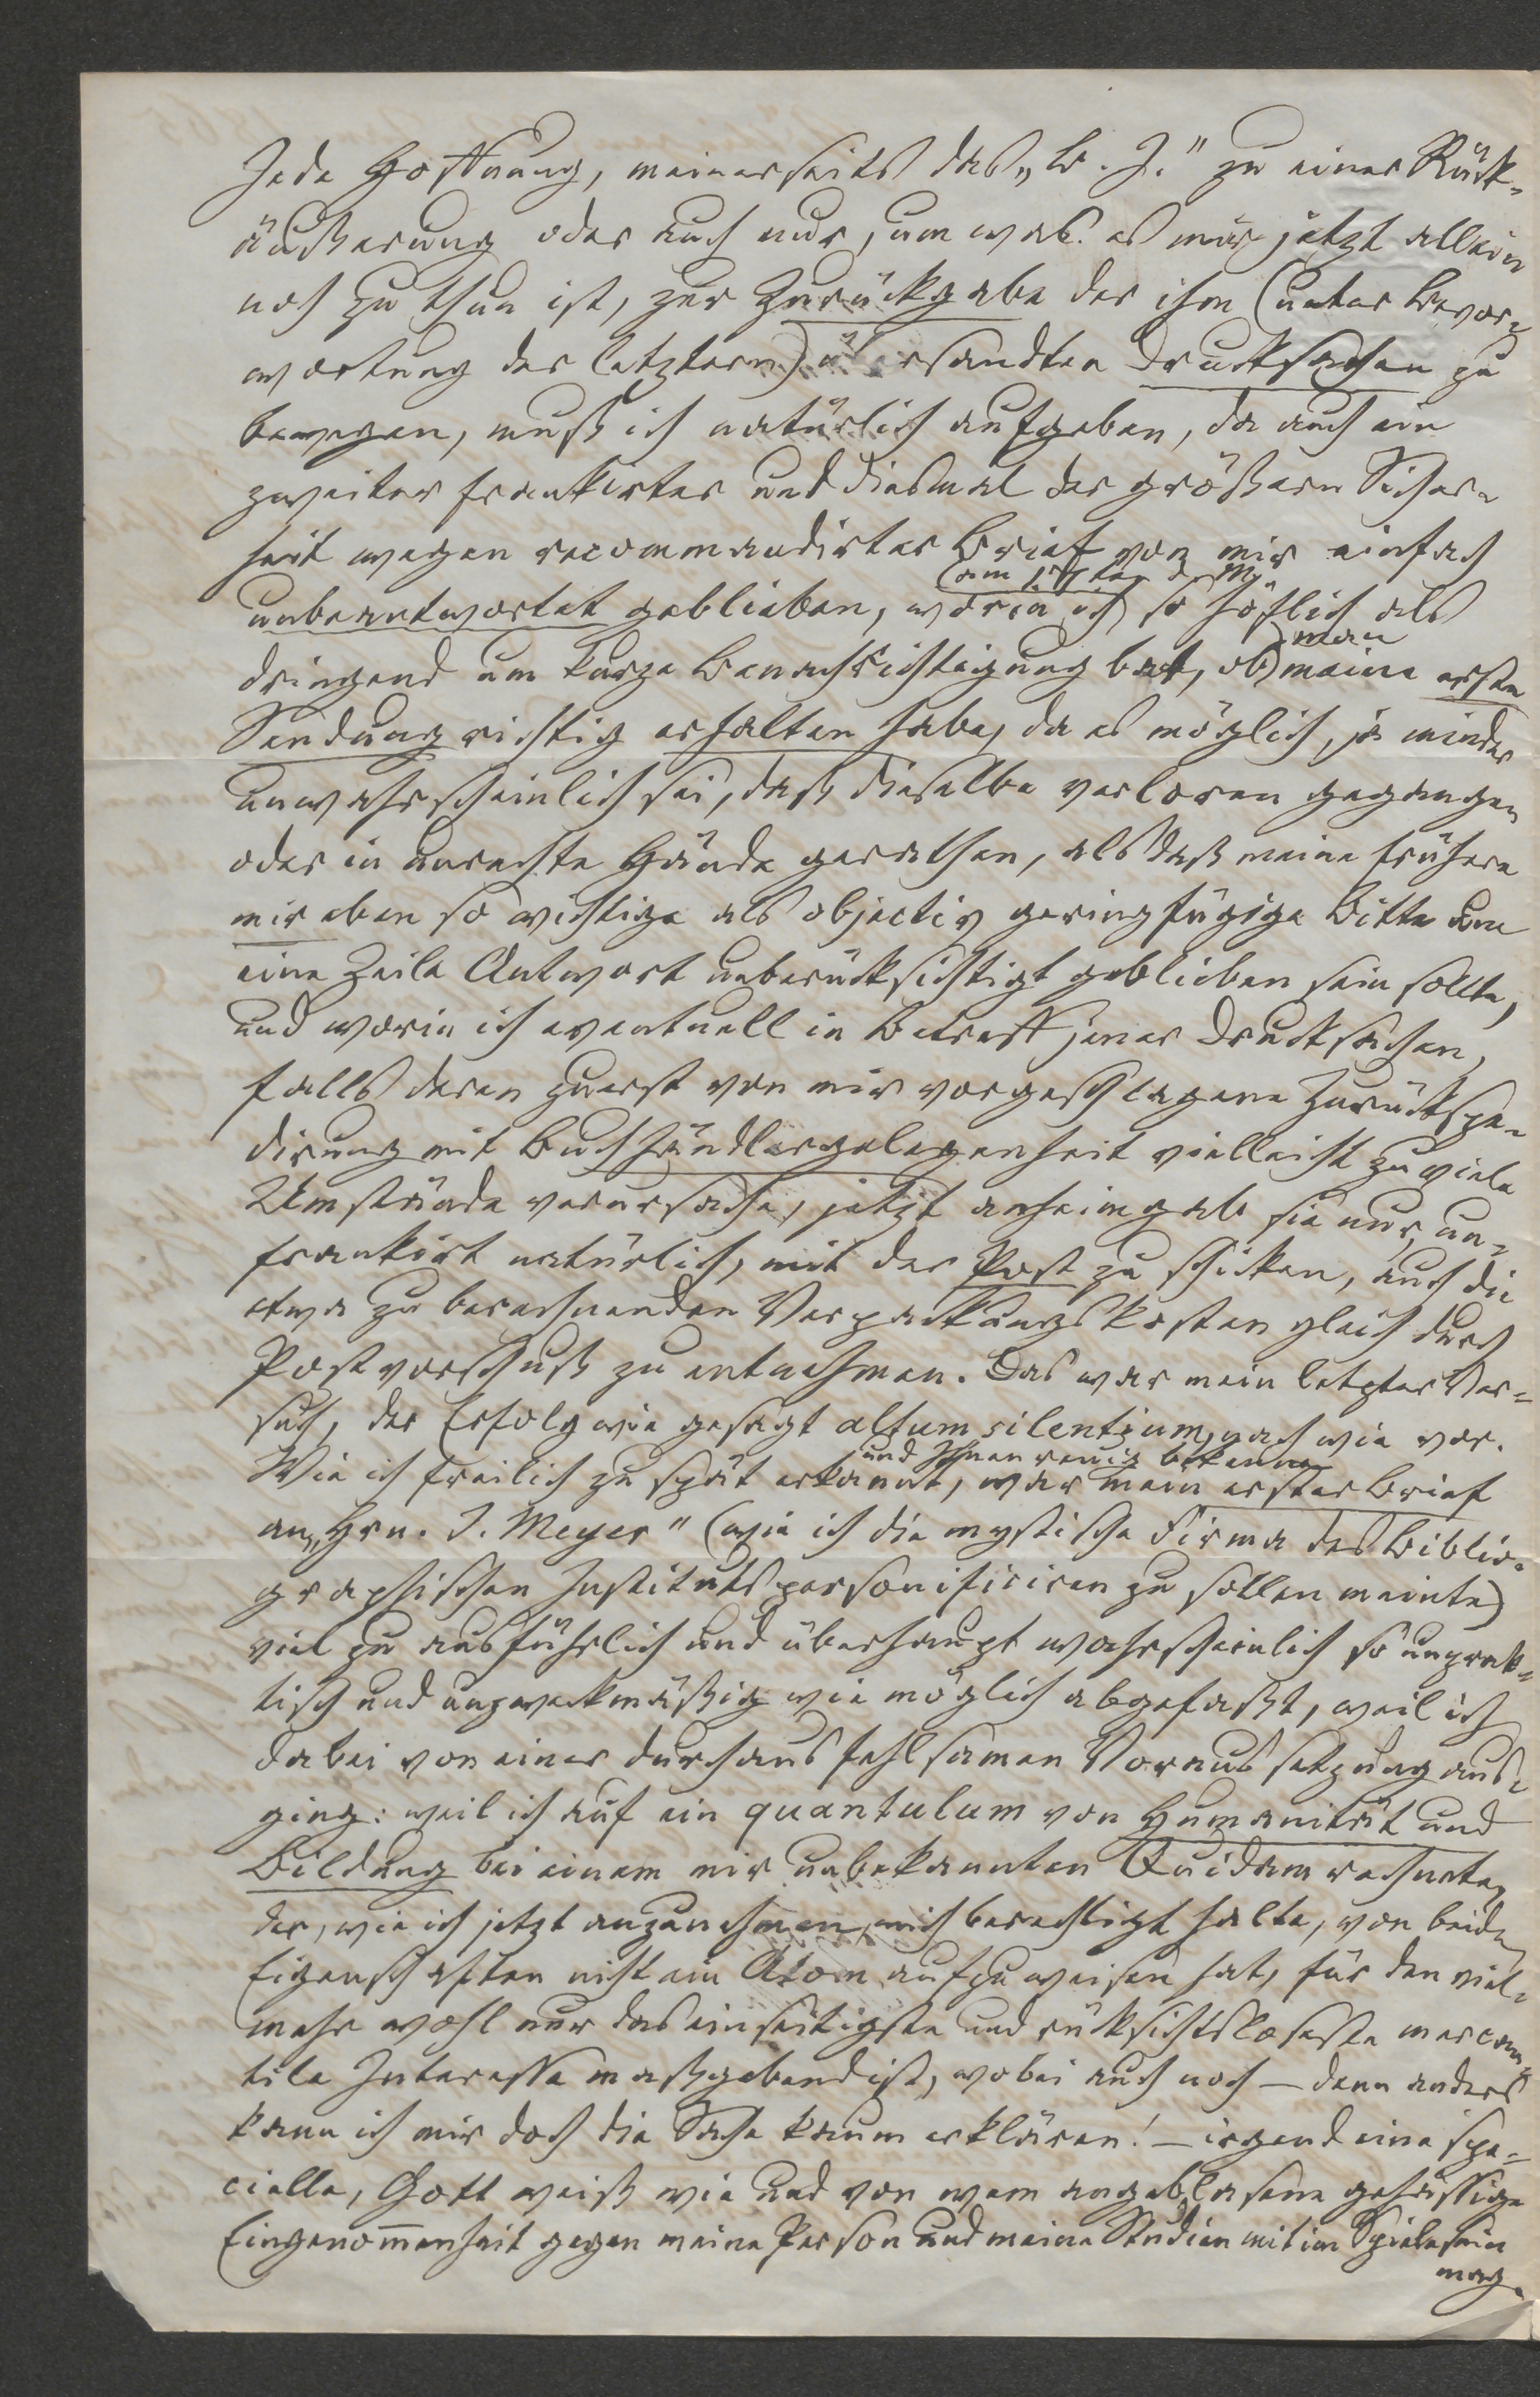 Jede Hoffnung, meinerseits das „B. J." zu einer Rück-
äußerung oder auch nur, um was es mir jetzt allein
noch zu thun ist, zur Zurückgabe der ihm (unter Bevor-
wortung der letztern) übersandten Drucksachen zu
bewegen, muß ich natürlich aufgeben, da auch ein
zweiter frankirter und diesmal der größern Sicher-
heit wegen recommandirter Brief von mir einfach
(am 17 ten d. M.)
unbeantwortet geblieben, worin ich so höflich als
man
dringend um kurze Benachrichtigung bat, ob meine erste
Sendung richtig erhalten habe, da es möglich, ja minder
unwahrscheinlich sei, daß dieselbe verloren gegangen
oder in unrechte Hände gerathen, als daß meine frühere
mir eben so wichtige als objectiv geringfügige Bitte um
eine Zeile Antwort unberücksichtigt geblieben sein sollte,
und worin ich eventuell in Betreff jener Drucksachen,
falls deren zuerst von mir vorgeschlagene Zurückspe-
dirung mit Buchhändlergelegenheit vielleicht zu viele
Umstände verursache, jetzt anheimgab sie nur, un-
frankirt natürlich, mit der Post zu schicken, auch die
etwa zu berechnenden Verpackungskosten gleich durch
Postvorschuß zu entnehmen. Das war mein letzter Ver-
such, der Erfolg wie gesagt altum silentium, nach wie vor.
und Ihnen reuig bekenne
Wie ich freilich zu spät erkannt, war mein erster Brief
an „Hrn. J. Meyer" (wie ich die mystische Firma des Biblio-
graphischen Instituts personificiren zu sollen meinte)
viel zu ausführlich und überhaupt wahrscheinlich so unprak-
tisch und unzweckmäßig wie möglich abgefaßt, weil ich
dabei von einer durchaus fehlsamen Voraussetzung aus-
ging: weil ich auf ein quantulum von Humanität und
Bildung bei einem mir unbekannten Quidam rechnete,
der, wie ich jetzt anzunehmen mich berechtigt halte, von beiden
Eigenschaften nicht ein Atom aufzuweisen hat, für den viel-
mehr wohl nur das einseitigste und rücksichtsloseste mercan-
tile Interesse maßgebend ist, wobei auch noch – denn anders
kann ich mir doch die Sache kaum erklären! – irgend eine spe-
cielle, Gott weiß wie und von wem angeblasene gehässige
Eingenommenheit gegen meine Person und meine Studien mit im Spiele sein
mag.